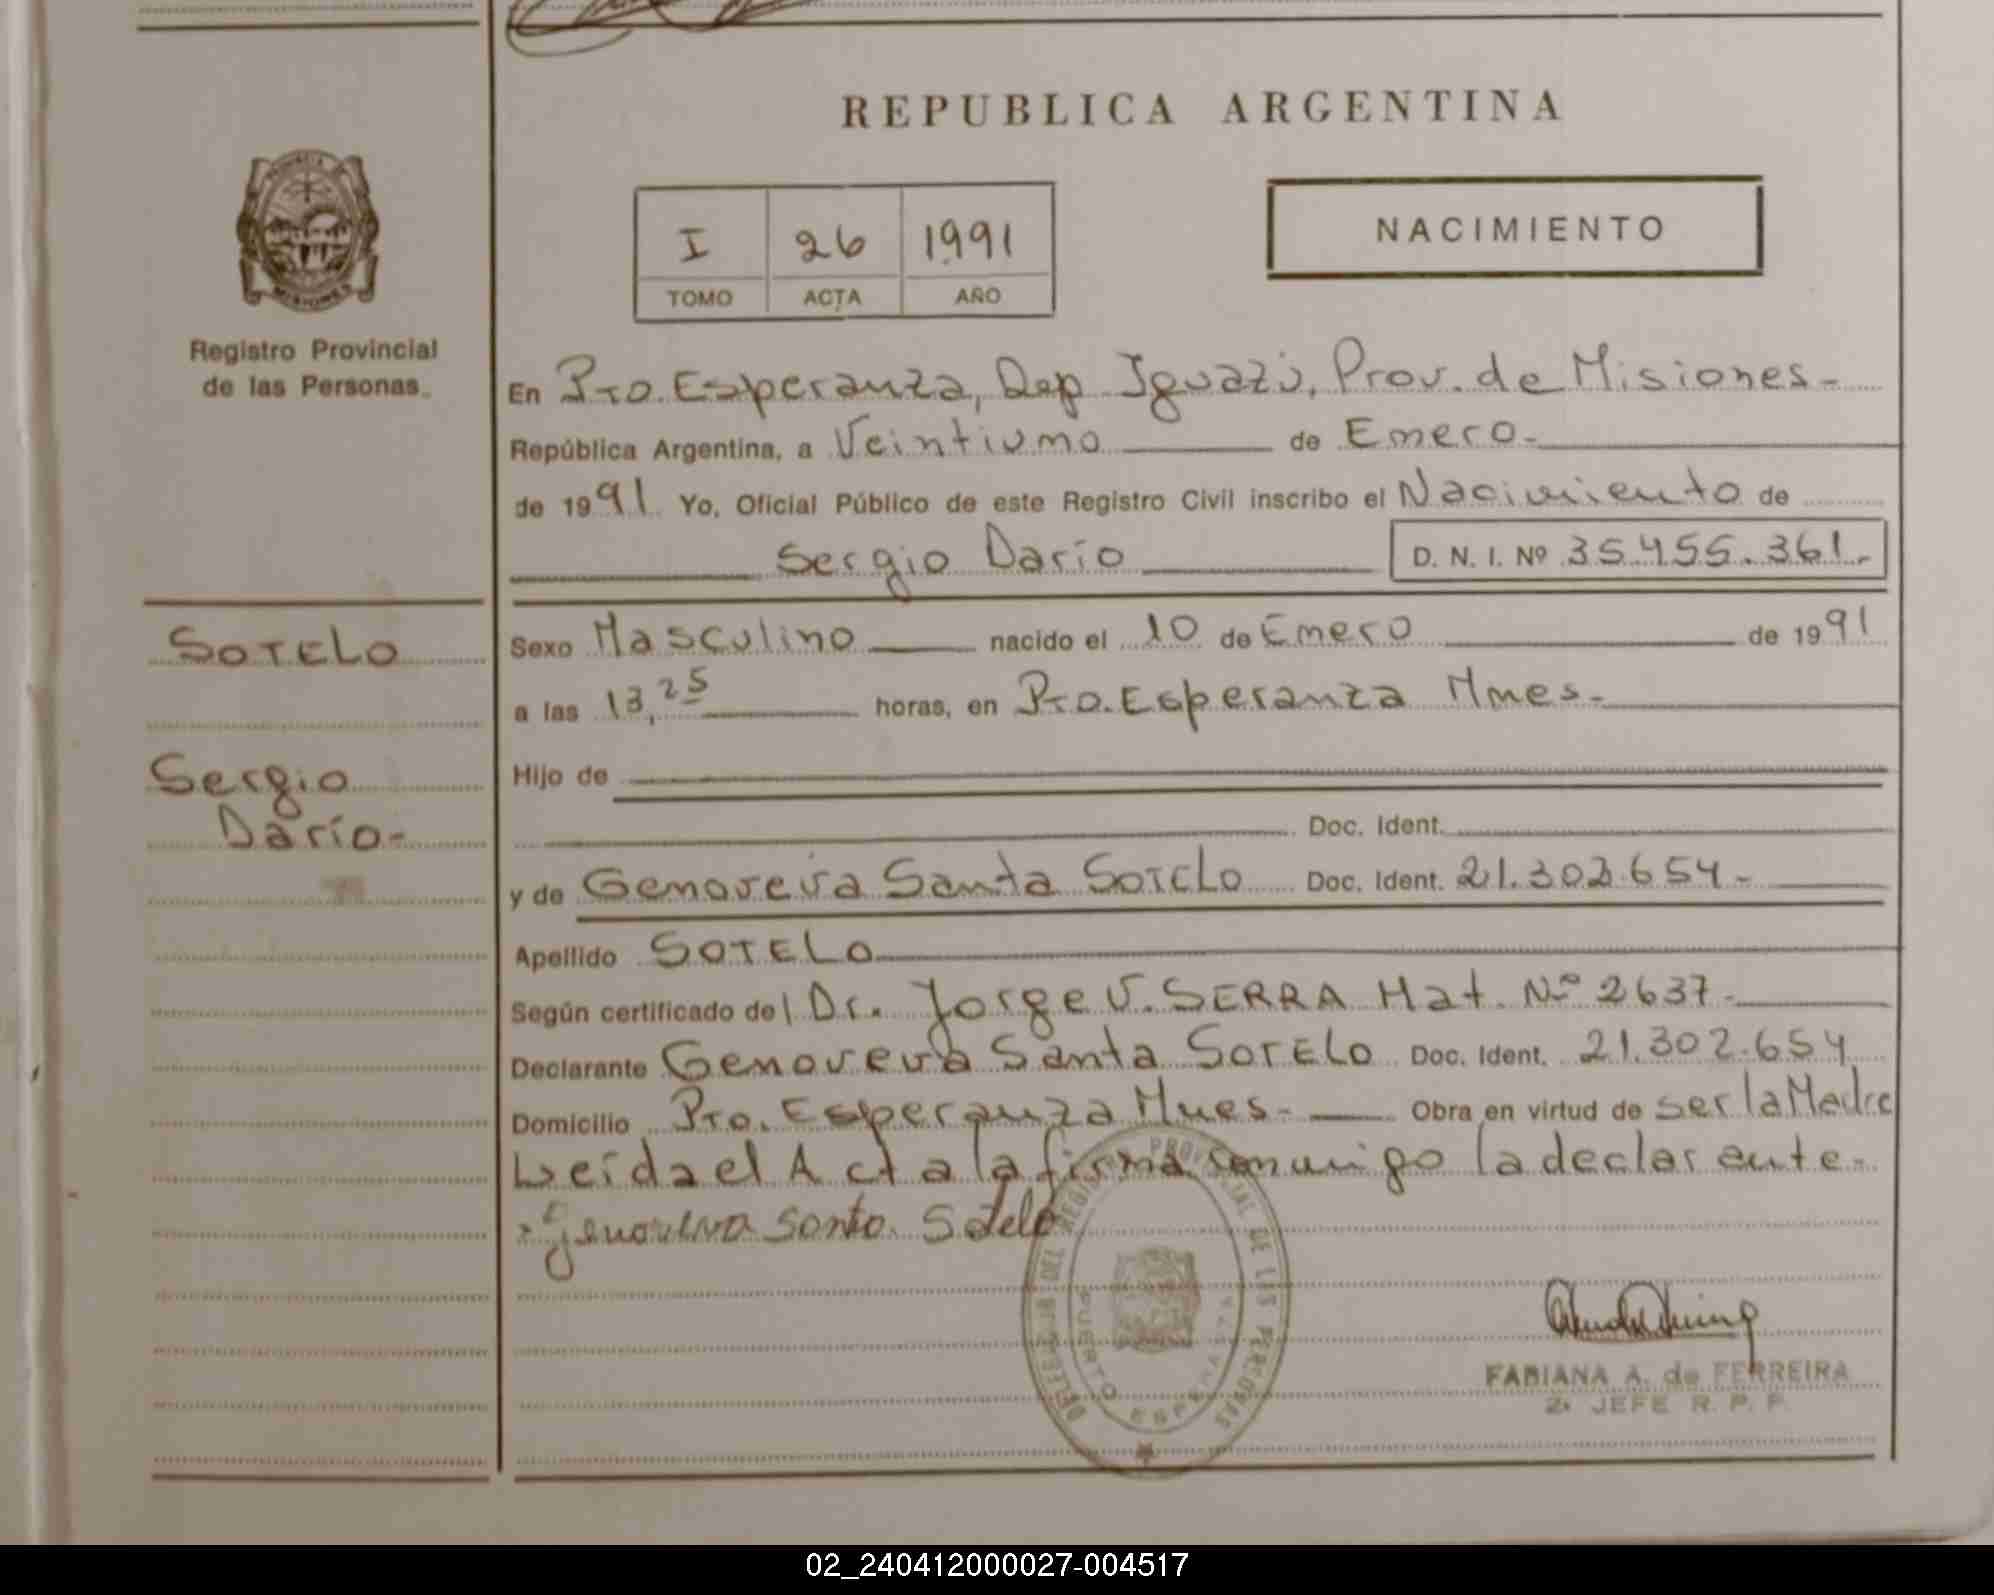 REPUBLICA ARGENTINA
PROVINCIA DE
MISIONES
Registro Provincial
de las Personas
I 26 1991
TOMO ACTA AÑO
NACIMIENTO
En Pto. Esperanza, Dep Iguazú, Prov. de Misiones -
República Argentina, a Veintiuno de Enero -
de 1991 Yo, Oficial Público de este Registro Civil inscribo el Nacimiento de
Sergio Darío D. N. I. Nº 35.455.361.-
SOTELO
Sergio
Darío-
Sexo Masculino nacido el 10 de Enero de 1991
a las 13,25 horas, en Pto. Esperanza Mnes -
Hijo de
Doc. Ident.
y de Genoveva Santa SOTELO Doc. Ident. 21.302.654 -
Apellido SOTELO
Según certificado del Dr. Jorge V. SERRA Mat. Nº 2637 -
Declarante Genoveva Santa SOTELO Doc. Ident. 21.302.654
Domicilio Pto. Esperanza Mnes - Obra en virtud de ser la Madre
Leída el Acta la firma conmigo la declarante -
Genoveva Santa Sotelo
DELEGACIA DEL REGISTRO PROVINCIAL DE LAS PERSONAS
PUERTO ESPERANZA
FABIANA A. de FERREIRA
2º JEFE R. P. P.
02_240412000027-004517